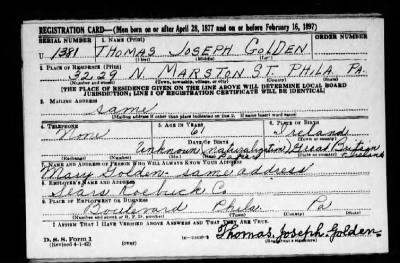 REGISTRATION CARD—(Men born on or after April 28, 1877 and on or before February 16, 1897)
SERIAL NUMBER 1. NAME (Print) ORDER NUMBER
U 1381 THOMAS JOSEPH GOLDEN
(First) (Middle) (Last)
2. PLACE OF RESIDENCE (Print)
3229 N. MARSTON ST. PHILA PA.
(Number and street) (Town, township, village, or city) (County) (State)
[THE PLACE OF RESIDENCE GIVEN ON THE LINE ABOVE WILL DETERMINE LOCAL BOARD
JURISDICTION; LINE 2 OF REGISTRATION CERTIFICATE WILL BE IDENTICAL]
3. MAILING ADDRESS
same
[Mailing address if other than place indicated on line 2. If same insert word same]
4. TELEPHONE 5. AGE IN YEARS 6. PLACE OF BIRTH
61 Ireland
DATE OF BIRTH
unknown (naturalization) Great Britain
Papers & Ireland
(Exchange) (Number) (Mo.) (Day) (Yr.) (State or country)
7. NAME AND ADDRESS OF PERSON WHO WILL ALWAYS KNOW YOUR ADDRESS
Mary Golden - same address
8. EMPLOYER'S NAME AND ADDRESS
Sears Roebuck Co
9. PLACE OF EMPLOYMENT OR BUSINESS
Boulevard Phila Pa
(Number and street or R. F. D. number) (Town) (County) (State)
I AFFIRM THAT I HAVE VERIFIED ABOVE ANSWERS AND THAT THEY ARE TRUE.
D. S. S. Form 1
(Revised 4-1-42) (over)
Thomas Joseph Golden
(Registrant's signature)